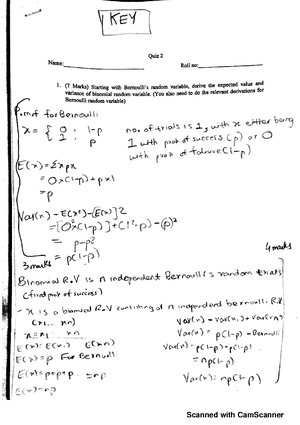 KEY
Quiz 2
Name: Roll no:
1. (7 Marks) Starting with Bernoulli's random variable, derive the expected value and
variance of binomial random variable. (You also need to do the relevant derivations for
Bernoulli random variable)
P.m.f for Bernoulli
X = { 0 : 1-p
1 : p
no. of trials is 1, with x either being
1 with prob of success (p) or 0
with prob of failure (1-p)
E(x) = Σxpx
= 0x(1-p) + px1
= p
Var(x) - E(x²) - (E(x))2
= [0²x(1-p)] + (1²·p) - (p)²
= p-p²
= p(1-p)
3 marks
4 marks
Binomial R.V is n independent Bernoulli's random trials
(find prob of success)
- X is a binomial R.V consisting of n independent bernoulli R.V
(x1... xn)
E(x) = p For Bernoulli
E(x) = p+p+p = np
E(x) = np
Var(x) = Var(x1) + Var(xn)
Var(x) = p(1-p) - Bernoulli
Var(x) = p(1-p) + p(1-p)
= np(1-p)
Var(x): np(1-p)
Scanned with CamScanner